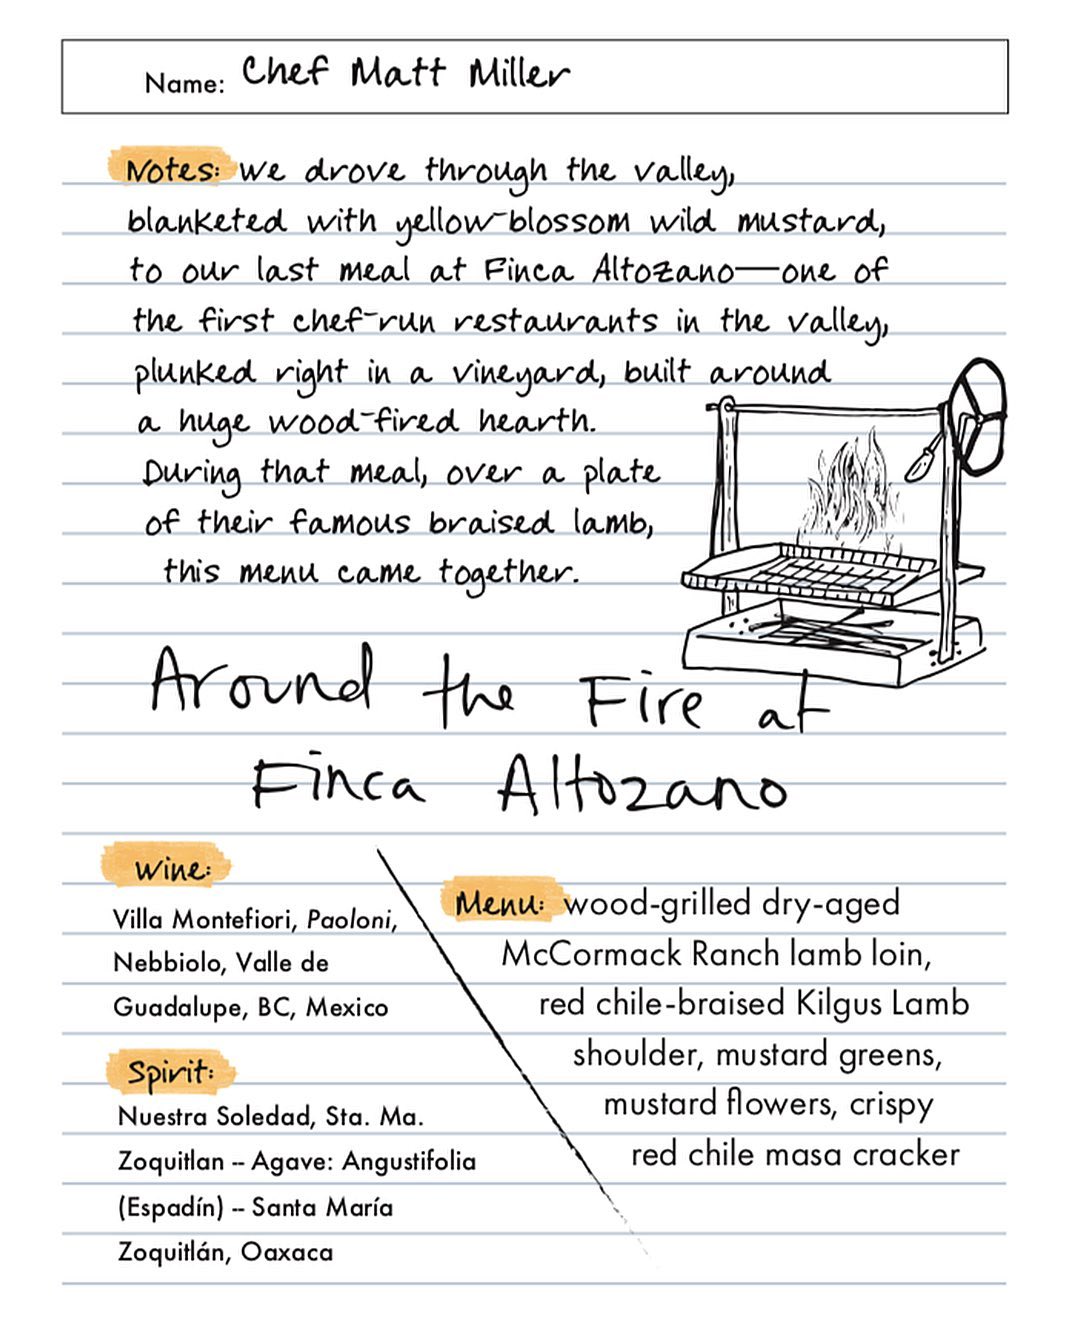 Name: Chef Matt Miller
Notes: we drove through the valley,
blanketed with yellow-blossom wild mustard,
to our last meal at Finca Altozano—one of
the first chef-run restaurants in the valley,
plunked right in a vineyard, built around
a huge wood-fired hearth.
During that meal, over a plate
of their famous braised lamb,
this menu came together.
Around the Fire at
Finca Altozano
Wine:
Villa Montefiori, Paoloni,
Nebbiolo, Valle de
Guadalupe, BC, Mexico
Spirit:
Nuestra Soledad, Sta. Ma.
Zoquitlan -- Agave: Angustifolia
(Espadín) -- Santa María
Zoquitlán, Oaxaca
Menu: wood-grilled dry-aged
McCormack Ranch lamb loin,
red chile-braised Kilgus Lamb
shoulder, mustard greens,
mustard flowers, crispy
red chile masa cracker